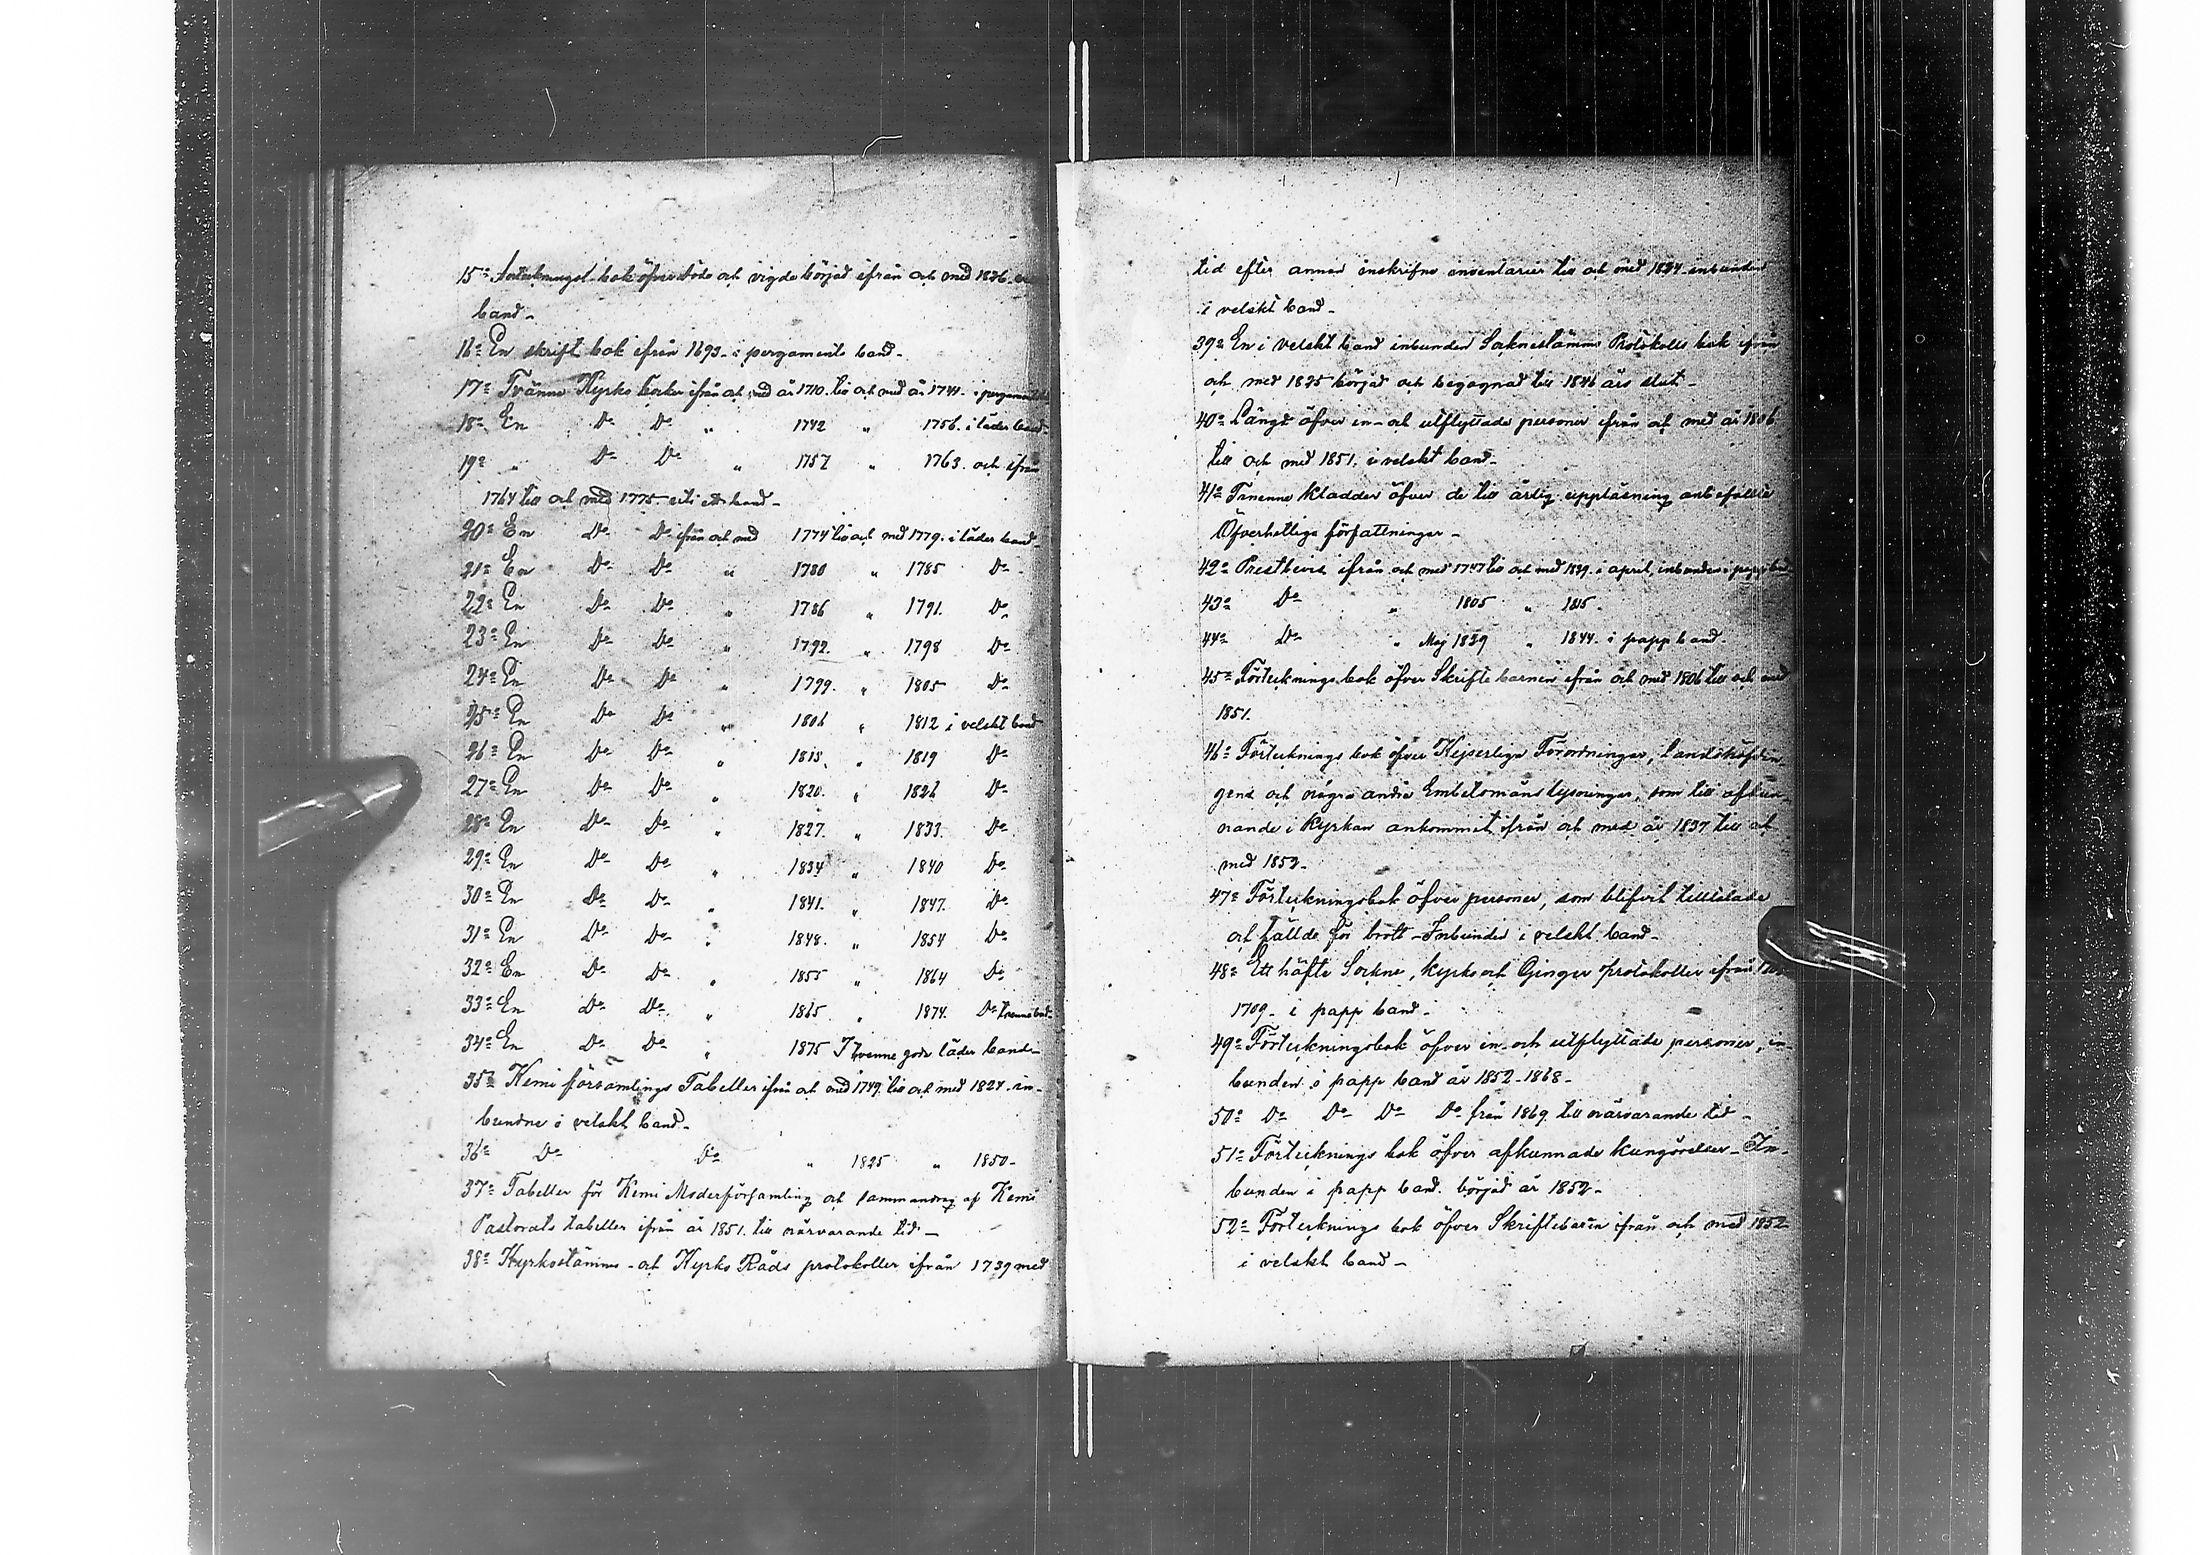 15o Förteckningsbok öfver döde och vigde börjad ifrån och med 1836
band_
16o En skrift bok ifrån 1693_ i pergaments band_
17o Tvänne Kyrko böcker ifrån och med år 1710. till och med år 1741. i pergaments
18o En Do Do „ 1742 „ 1756. i läder band_
19o „ Do Do „ 1757 „ 1763. och ifrån
1764 till och med 1775 uti ett band_
20o En Do Do ifrån och med 1774 till och med 1779. i läder band_
21o En Do Do „ 1780 „ 1785 Do
22o En Do Do „ 1786 „ 1791. Do
23o En Do Do „ 1792. „ 1798 Do
24o En Do Do „ 1799. „ 1805 Do
25o En Do Do „ 1806 „ 1812 i velskt band
26o En Do Do „ 1813. „ 1819 Do
27o En Do Do „ 1820. „ 1826 Do
28o En Do Do „ 1827. „ 1833. Do
29o En Do Do „ 1834 „ 1840 Do
30o En Do Do „ 1841. „ 1847. Do
31o En Do Do „ 1848. „ 1854 Do
32o En Do Do „ 1855 „ 1864 Do
33o En Do Do „ 1865 „ 1874. Do
34o En Do Do „ 1875 I tvenne goda läder band_
35o Kemi församlings Tabeller ifrån och med 1749. till och med 1824_ in-
bundne i velskt band_
36o Do Do „ 1825 „ 1850_
37o Tabeller för Kemi Moderförsamling och sammandrag af Kemi
Pastorats tabeller ifrån år 1851. till närvarande tid_
38o Kyrkostämme_ och Kyrko Råds protokoller ifrån 1739 med
tid efter annan inskrifne inventarier till och med 1824 inbunden
i velskt band_
39o En i velskt band inbunden Socknestämmo Protokolls bok ifrån
och med 1825 börjad och begagnad till 1846 års slut_
40o Längd öfver in- och utflyttade personer ifrån och med år 1806
till och med 1851. i velskt band_
41o Trenne kladdar öfver de till årlig uppläsning anbefallde
Öfverhetliga författningar_
42o Prestbevis ifrån och med 1747 till och med 1839. i april, inbunden i papp band
43o Do „ 1805 „ 1815.
44o Do „ Maj 1839 „ 1844. i papp band_
45o Förteckningsbok öfver Skriftebarnen ifrån och med 1806 till och med
1851.
46o Förtecknings bok öfver Kejserliga Förordningar, Landshöfdin-
gens och några andra Embetsmäns lysningar, som till afkun-
nande i kyrkan ankommit ifrån och med år 1837 till och
med 1852_
47o Förteckningsbok öfver personer, som blifvit tilltalade
och fällde för brott_ Inbunden i velskt band_
48o Ett häfte Sockne, kyrko och protokoller ifrån
1709_ i papp band_
49o Förteckningsbok öfver in_ och utflyttade personer, in-
bunden i papp band år 1852_1868_
50o Do Do Do Do från 1869. till närvarande tid_
51o Förtecknings bok öfver afkunnade kungörelser_ In-
bunden i papp band. börjad år 1852_
52o Förtecknings bok öfver Skriftebarn ifrån och med 1852
i velskt band_